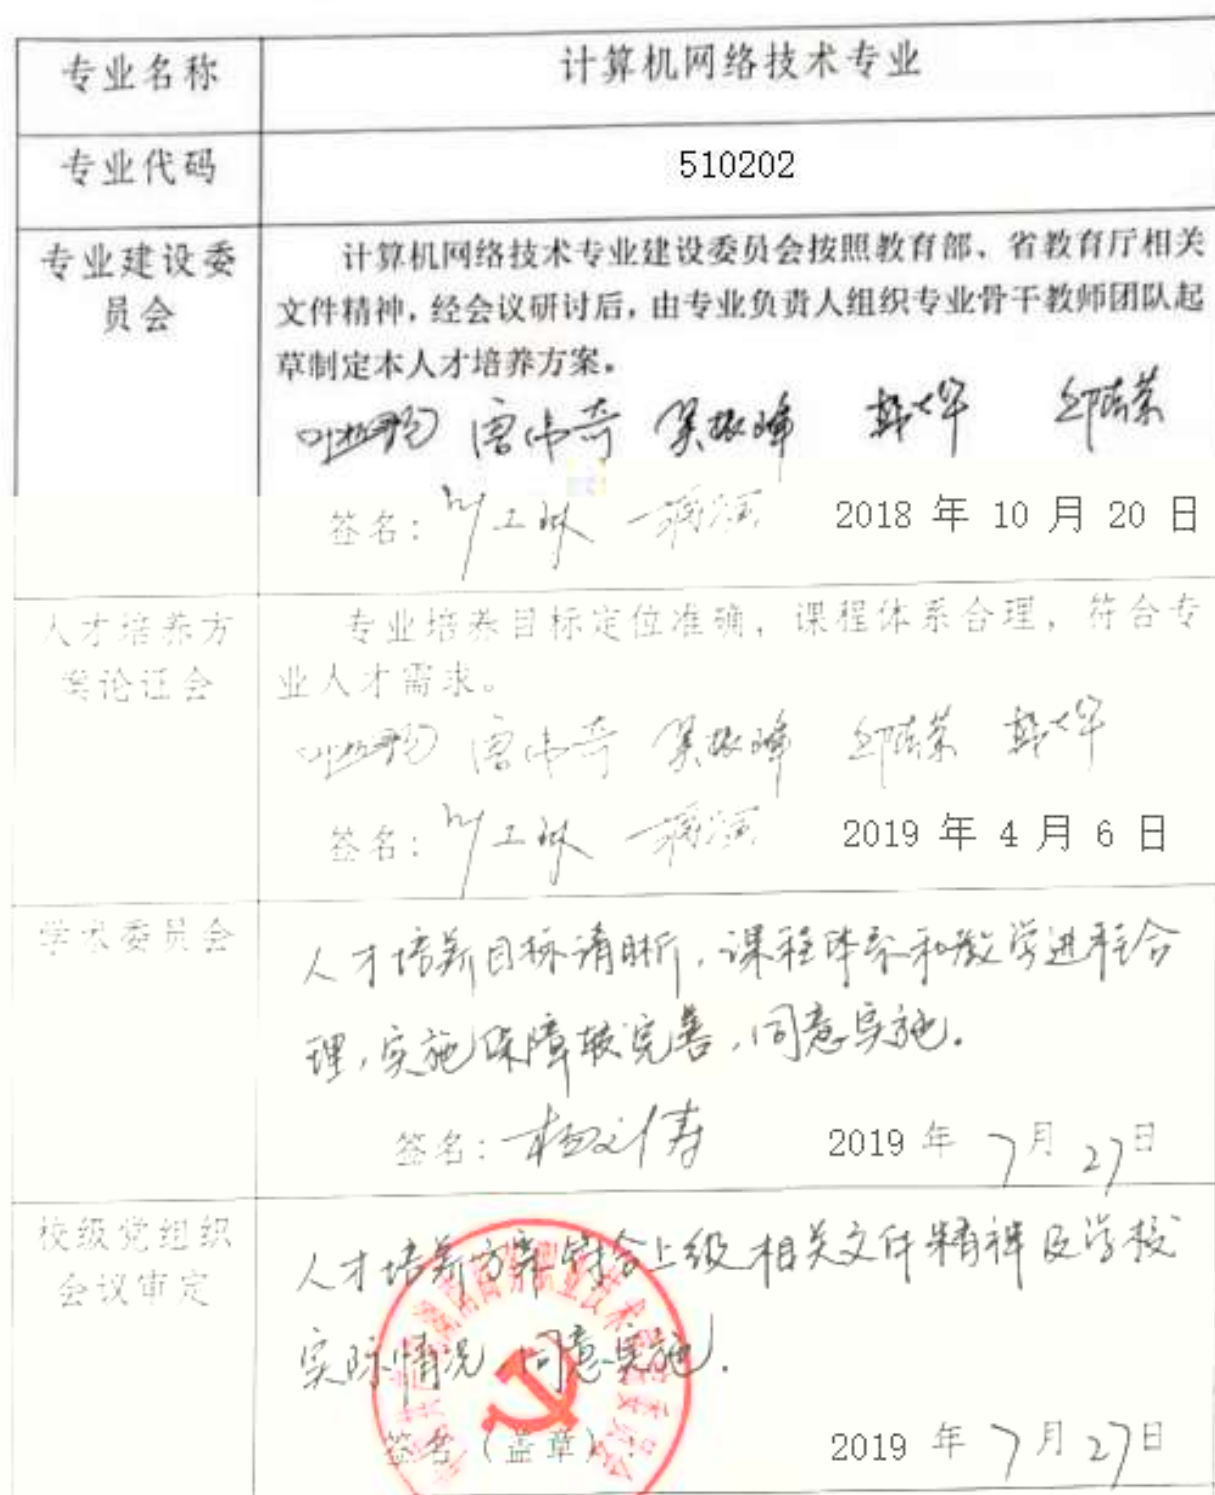 专业名称
计算机网络技术专业
专业代码
510202
专业建设委
员会
计算机网络技术专业建设委员会按照教育部、省教育厅相关
文件精神，经会议研讨后，由专业负责人组织专业骨干教师团队起
草制定本人才培养方案。
唐伟奇 吴振峰
签名： 2018 年 10 月 20 日
人才培养方
案论证会
专业培养目标定位准确，课程体系合理，符合专
业人才需求。
唐伟奇 吴振峰
签名： 2019 年 4 月 6 日
学术委员会
人才培养目标清晰，课程体系和教学进程合
理，实施保障较完善，同意实施.
签名： 2019 年 7 月 27 日
校级党组织
会议审定
人才培养方案符合上级相关文件精神及学校
实际情况，同意实施.
签名（盖章）： 2019 年 7 月 27 日